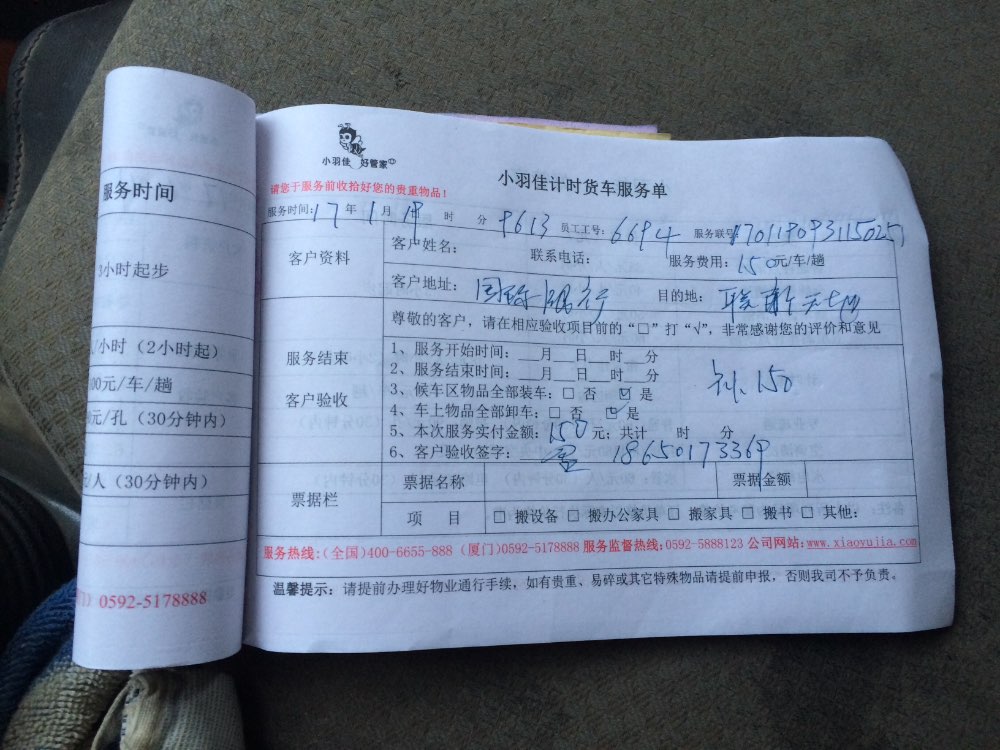 服务时间
3小时起步
/小时（2小时起）
00元/车/趟
元/孔（30分钟内）
/人（30分钟内）
0592-5178888
小羽佳 好管家
小羽佳计时货车服务单
请您于服务前收拾好您的贵重物品！
服务时间:17年1月19 时 分 9613 员工工号: 6694 服务联号:
客户资料
客户姓名： 联系电话： 服务费用：150元/车/趟
客户地址： 国际银行 目的地：
尊敬的客户，请在相应验收项目前的“□”打“√”，非常感谢您的评价和意见
服务结束
客户验收
1、服务开始时间：__月__日__时__分
2、服务结束时间：__月__日__时__分
3、候车区物品全部装车：□ 否 ☑ 是
4、车上物品全部卸车：□ 否 ☑ 是
5、本次服务实付金额：150元；共计 时 分
6、客户验收签字： 18650173369
150
票据栏
票据名称
票据金额
项 目
□ 搬设备 □ 搬办公家具 □ 搬家具 □ 搬书 □ 其他:
服务热线:(全国)400-6655-888 (厦门)0592-5178888 服务监督热线:0592-5888123 公司网站:www.xiaoyujia.com
温馨提示：请提前办理好物业通行手续，如有贵重、易碎或其它特殊物品请提前申报，否则我司不予负责。